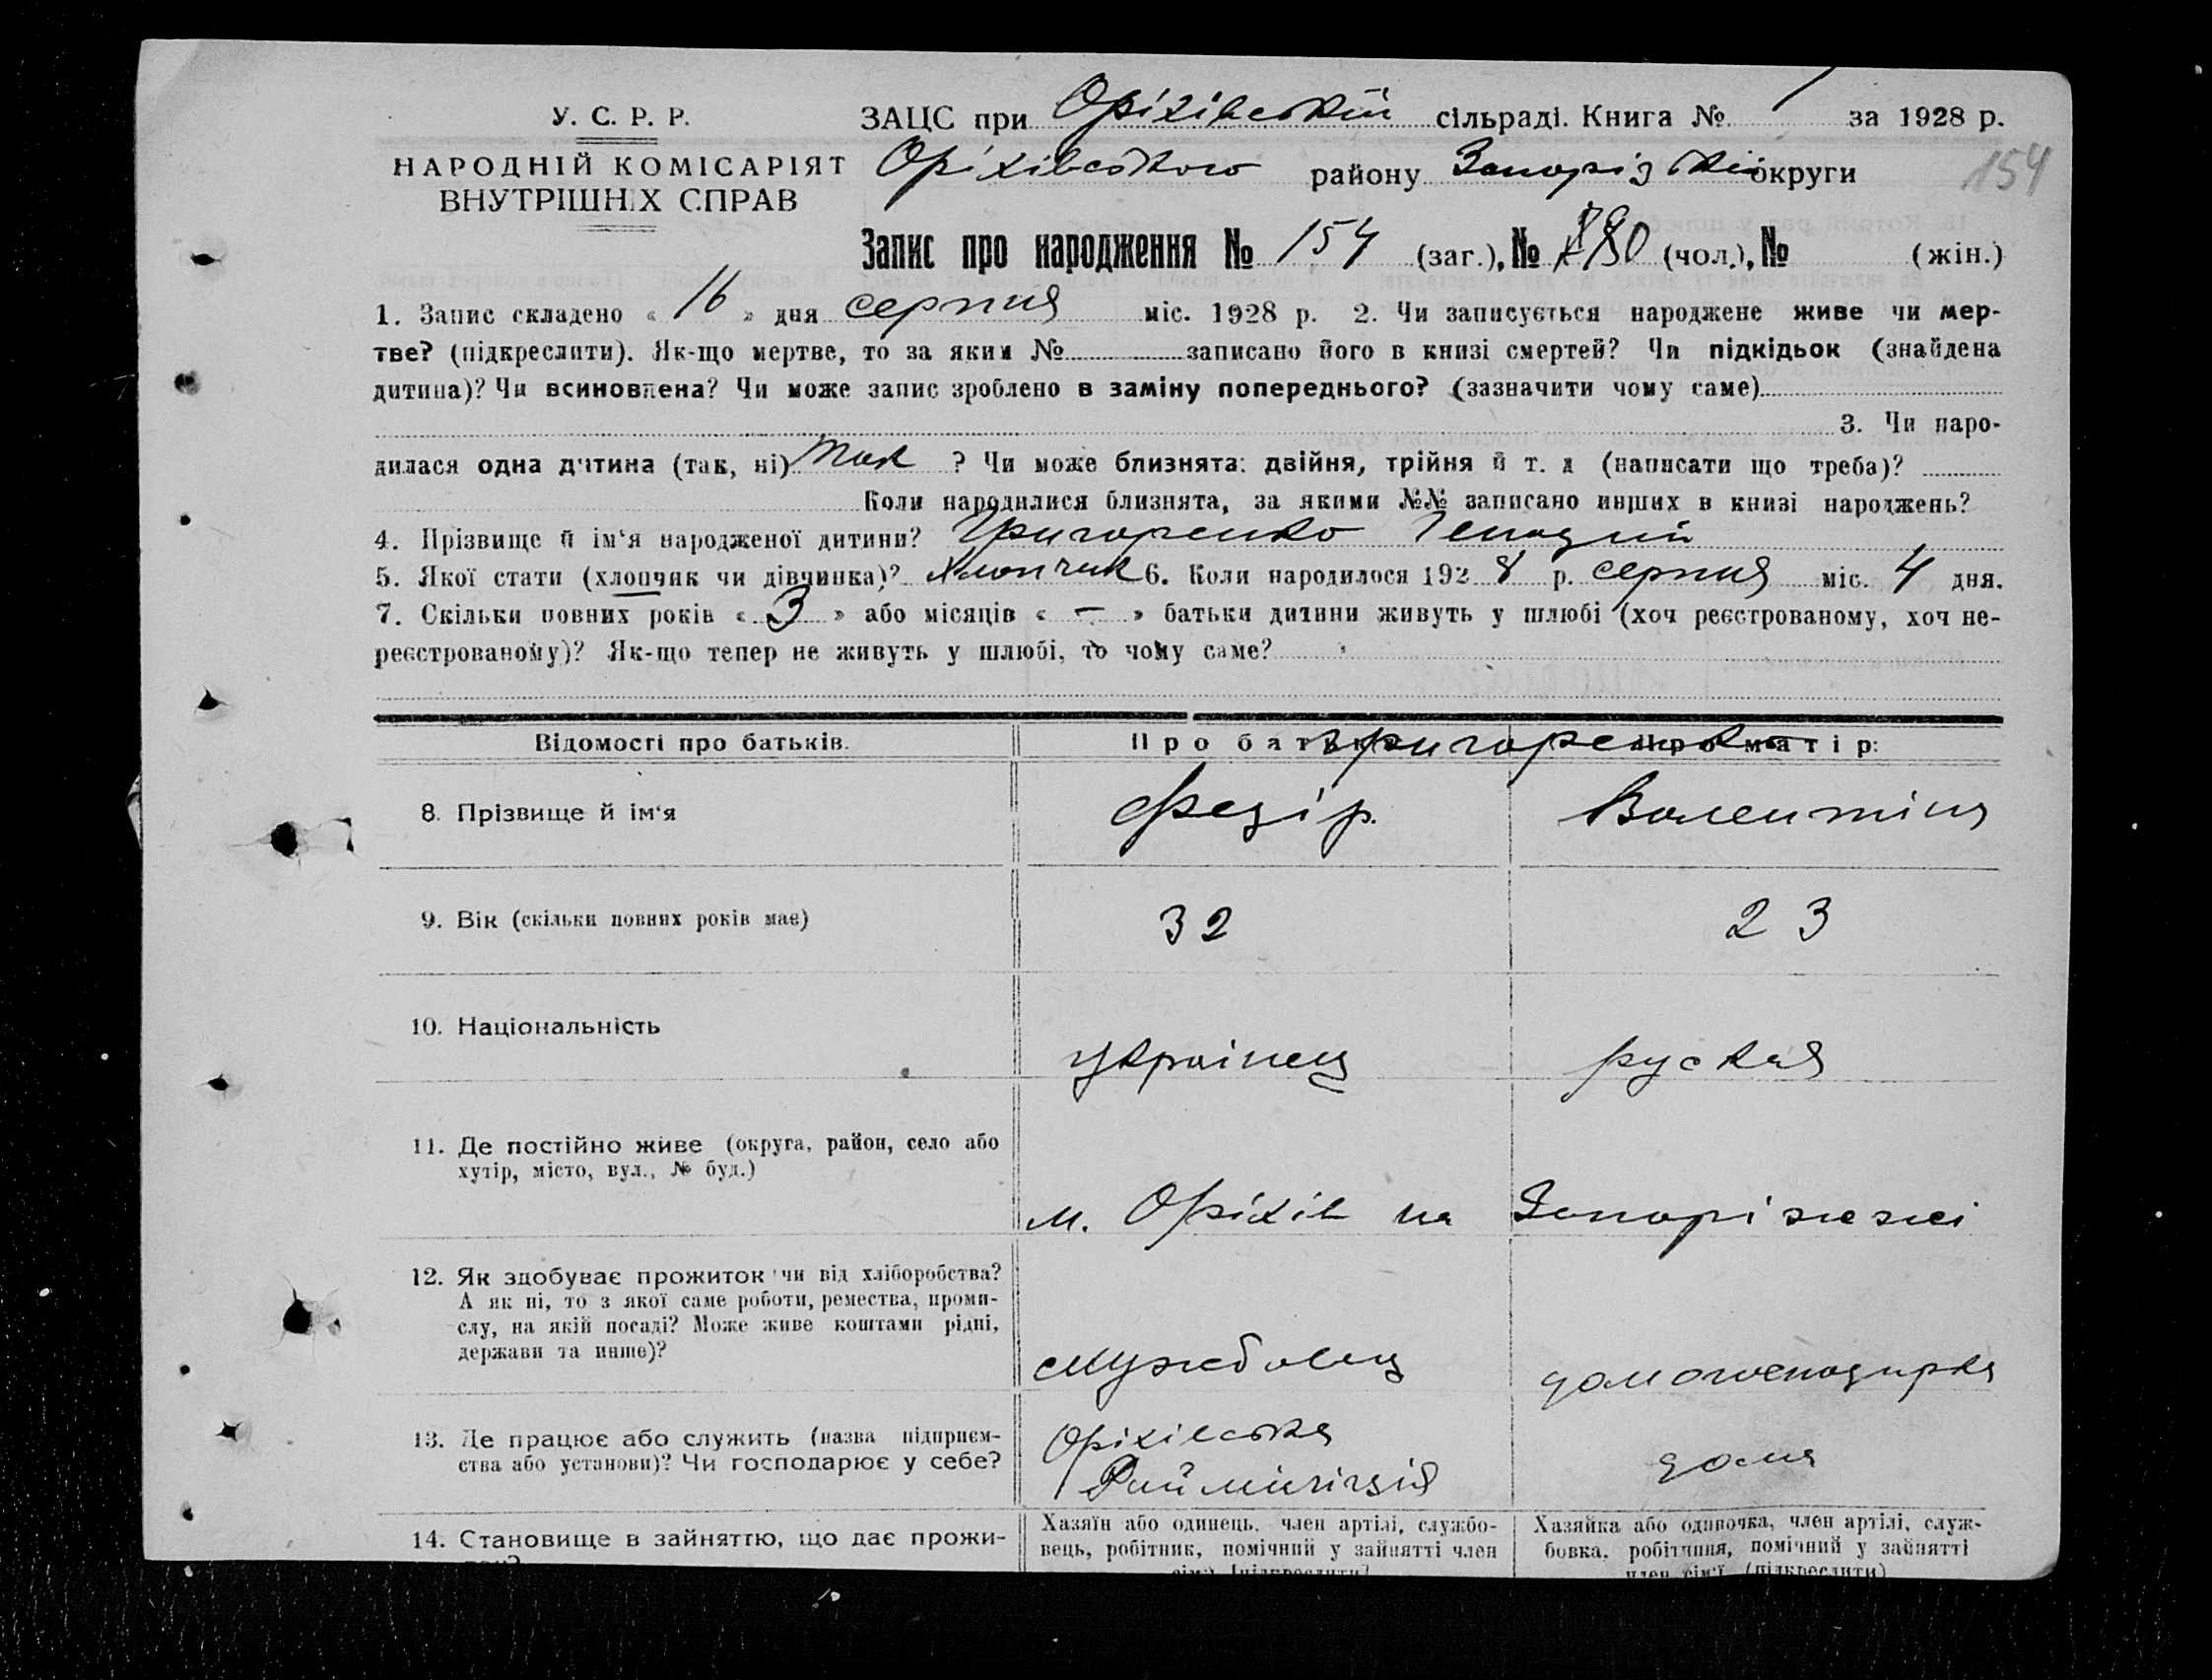 У. С. Р. Р.
НАРОДНІЙ КОМІСАРІЯТ
ВНУТРІШНІХ СПРАВ
ЗАЦС при Оріхівській сільраді. Книга № 1 за 1928 р.
Оріхівського району Запорізької округи
154
Запис про народження № 154 (заг.), № 80 (чол.), № (жін.)
1. Запис складено « 16 » дня серпня міс. 1928 р. 2. Чи записується народжене живе чи мер-
тве? (підкреслити). Як-що мертве, то за яким № записано його в книзі смертей? Чи підкідьок (знайдена
дитина)? Чи всиновлена? Чи може запис зроблено в заміну попереднього? (зазначити чому саме)
3. Чи наро-
дилася одна дитина (так, ні) так ? Чи може близнята: двійня, трійня й т. д (написати що треба)?
Коли народилися близнята, за якими №№ записано инших в книзі народжень?
4. Прізвище й ім‘я народженої дитини? Григоренко Генадий
5. Якої стати (хлопчик чи дівчинка)? Хлопчик 6. Коли народилося 1928 р. серпня міс. 4 дня.
7. Скільки повних років « 3 » або місяців « – » батьки дитини живуть у шлюбі (хоч реєстрованому, хоч не-
реєстрованому)? Як-що тепер не живуть у шлюбі, то чому саме?
Відомості про батьків. Про батька Про матір:
Григоренко
8. Прізвище й ім‘я Федір. Валентіна
9. Вік (скільки повних років має) 32 23
10. Національність українец руская
11. Де постійно живе (округа, район, село або
хутір, місто, вул., № буд.)
м. Оріхів на Запоріжжі
12. Як здобуває прожиток чи від хліборобства?
А як ні, то з якої саме роботи, ремества, проми-
слу, на якій посаді? Може живе коштами рідні,
держави та инше)?
службовец домогосподирка
13. Де працює або служить (назва підприєм-
ства або установи)? Чи господарює у себе?
Оріхівська
Райміліція
дома
14. Становище в зайняттю, що дає прожи-
Хазяїн або одинець, член артілі, службо-
вець, робітник, помічний у зайнятті член
сім‘ї (підкреслити)
Хазяйка або одиночка, член артілі, служ-
бовка, робітниця, помічний у зайнятті
член сім‘ї (підкреслити)